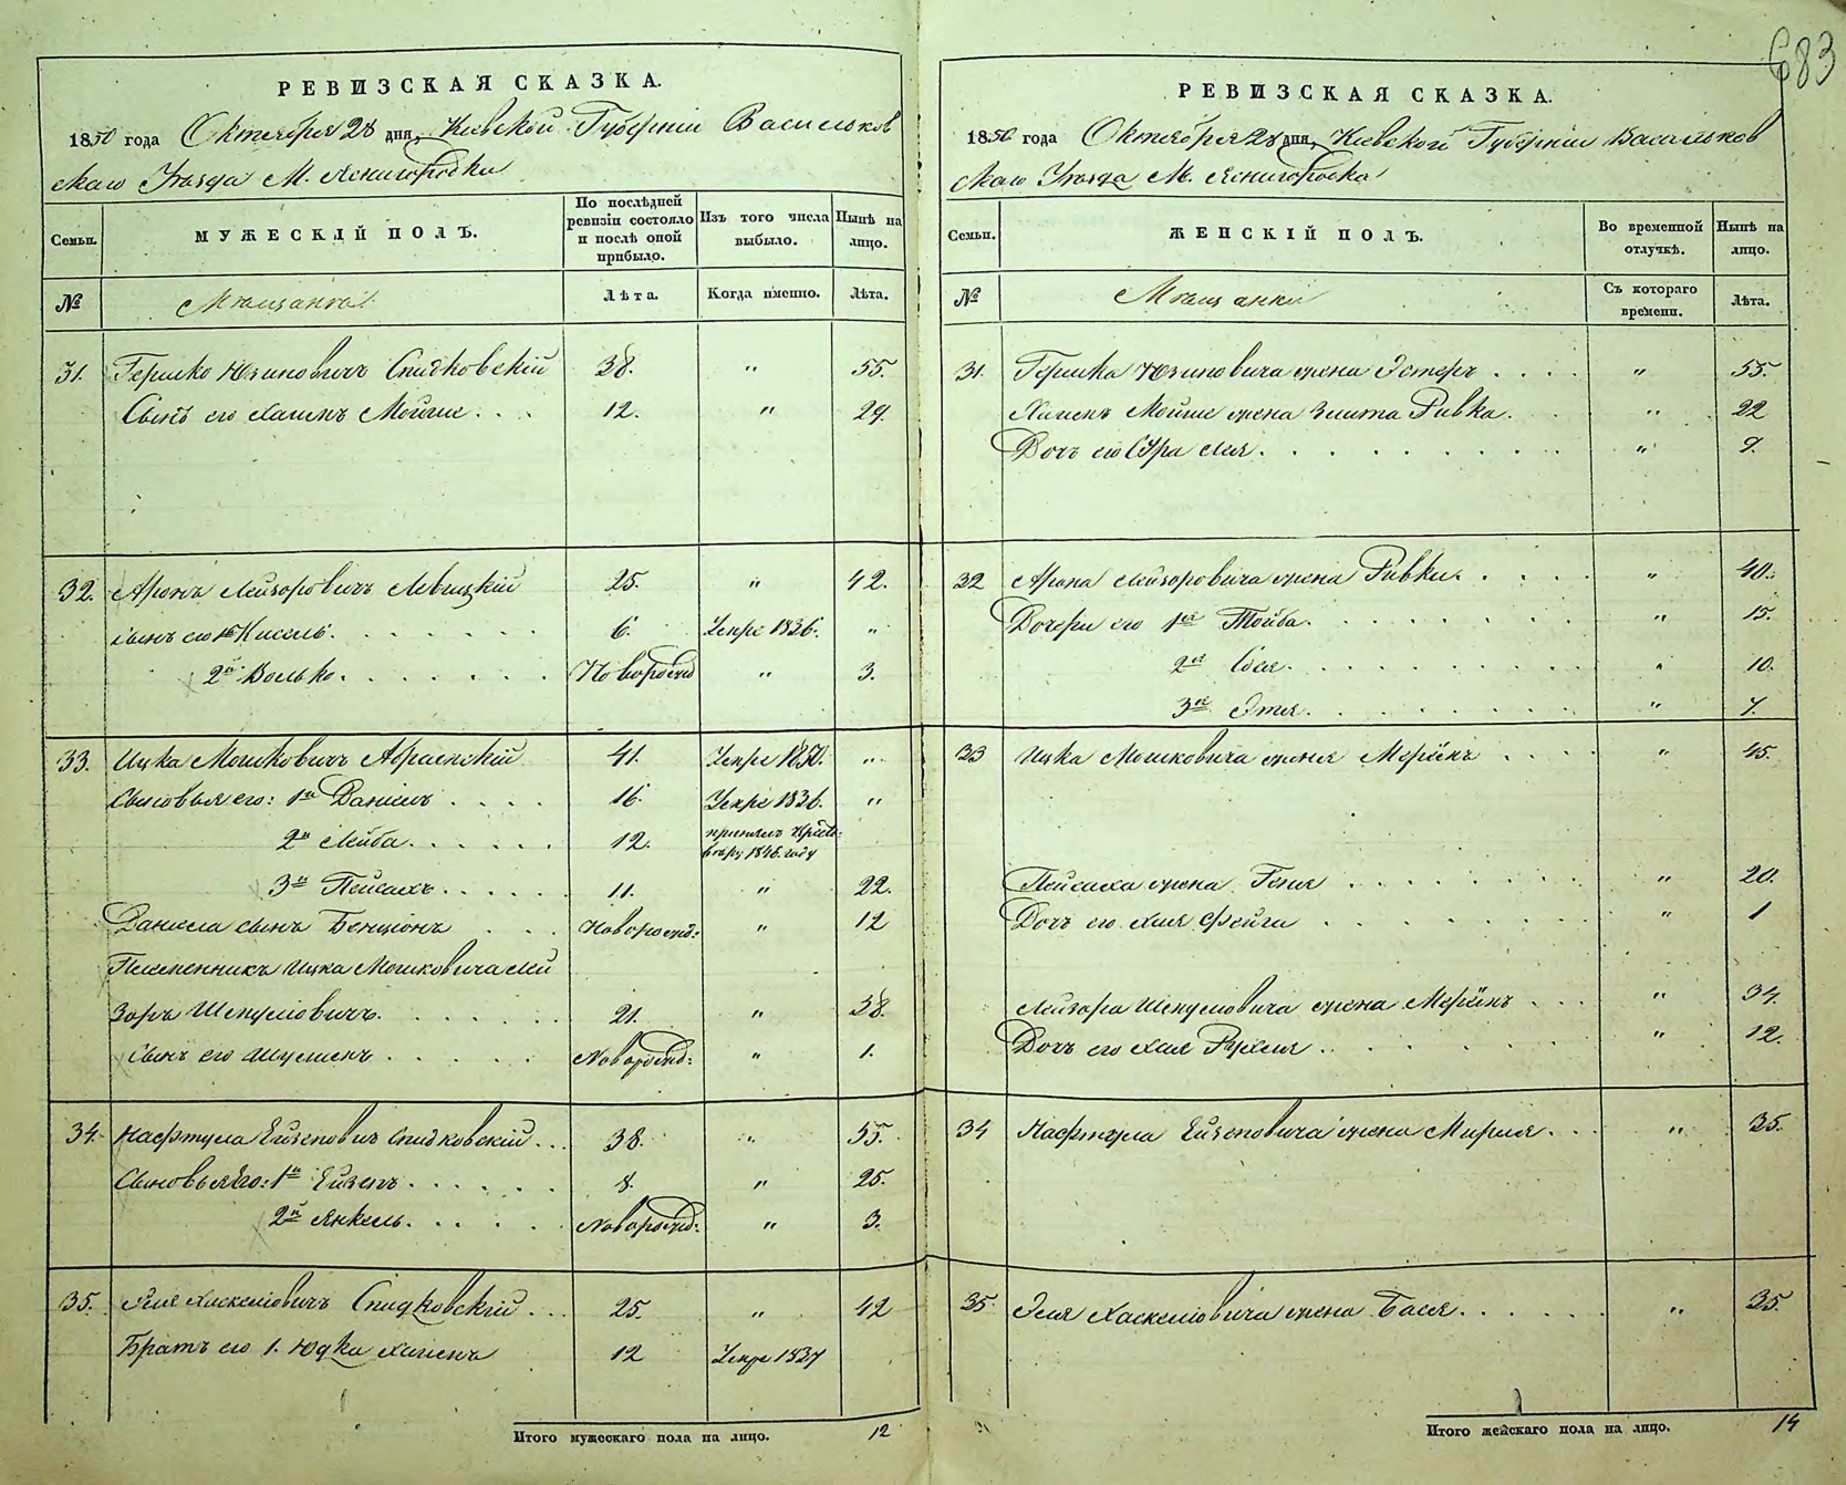 683
РЕВИЗСКАЯ СКАЗКА.
1850 года Октября 28 дня, Кіевской Губерніи Васильков
скаго Уѣзда М. Ясногородки
Семьи.
МУЖЕСКІЙ ПОЛЪ.
По послѣдней ревизіи состояло и послѣ оной прибыло.
Изъ того числа выбыло.
Нынѣ на лицо.
№
Мѣщане
Лѣта.
Когда именно.
Лѣта.
31. Гершко Юзиповичъ Спидковскій 38. " 55.
Сынъ его Хаимъ Мойше . . . 12. " 29.
32. Аронъ Лейзоровичъ Левицкій 25. " 42.
сынъ его 1й Кисель . . . . . . 6. Умре 1836. "
2й Волько . . . . . . Новорожд " 3.
33. Ицка Мошковичъ 41. Умре 1850. "
Сыновья его: 1й Даніель . . . . 16. Умре 1836. "
2й Лейба . . . . . . 12. принялъ Христ: вѣру 1846. году
3й Пейсахъ . . . . . 11. " 22.
Даниела сынъ Бенціонъ . . . Новорожд: " 12
Племенникъ Ицка Мошковича Лей
зоръ Шепуловичъ . . . . . . 21. " 38.
Сынъ его Шулимъ . . . . . Новорожд: " 1.
34. Нафтула Ейзеповичъ Спидковскій . . . 38. " 55.
Сыновья его: 1й Ейзепъ . . . . . . 8. " 25.
2й Янкель . . . . . Новорожд: " 3.
35. Эля Хаскелiовичъ Спидковскій . . . 25. " 42
Братъ его 1. Юдка Хаимъ 12 Умре 1837
Итого мужескаго пола на лицо. 12
РЕВИЗСКАЯ СКАЗКА.
1850 года Октября 28 дня, Кіевской Губерніи Васильков
скаго Уѣзда М. Ясногородка
Семьи.
ЖЕНСКІЙ ПОЛЪ.
Во временной отлучкѣ.
Нынѣ на лицо.
№
Мѣщанки
Съ котораго времени.
Лѣта.
31. Гершка Юзиповича жена Эстеръ . . . . " 55.
Хаимъ Мойше жена Злата Ривка. . . " 22
Дочь его Сура Лея . . . . . . . . . " 9.
32 Арона Лейзоровича жена Ривка. . . . . " 40.
Дочери его 1я Тойба. . . . . . . . " 15.
2я Бася. . . . . . . . . " 10.
3я Этя. . . . . . . . " 7.
33 Ицка Мошковича жена Меріемъ . . . . " 45.
Пейсаха жена Геня . . . . . . . . " 20.
Дочь его Хая Фейга . . . . . . . . " 1
Лейзора Шепуловича жена Меріемъ . . . " 34.
Дочь его Хая Рухля . . . . . . . " 12.
34 Нафтула Ейзеповича жена Мирля . . . " 35.
35 Эля Хаскелiовича жена Бася . . . . . . " 35.
Итого женскаго пола на лицо. 14